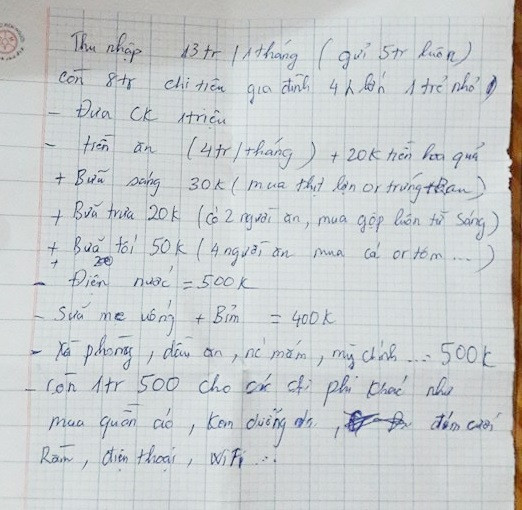 Thu nhập 13tr / 1 tháng ( gửi 5tr luôn )
còn 8tr chi tiêu gia đình 4 lớn 1 trẻ nhỏ )
- Đưa CK 1 triệu
- tiền ăn ( 4tr / tháng ) + 20K tiền hoa quả
+ Bữa sáng 30K ( mua thịt lợn or trứng + Rau )
+ Bữa trưa 20K ( có 2 người ăn, mua gộp luôn từ sáng )
+ Bữa tối 50K ( 4 người ăn mua cá or tôm ... )
+
- Điện nước = 500K
- Sữa mẹ uống + Bỉm = 400K
- Xà phòng, dầu ăn, nc mắm, mỳ chính ... 500K
- còn 1tr 500 cho các chi phí khác như
mua quần áo, kem dưỡng da, đám cưới
Rằm, điện thoại, WiFi ...